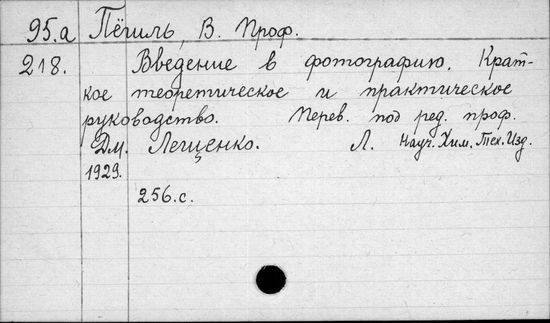 95.а Пёгиль, В. Проф.
218. Введение в фотографию. Крат-
кое теоретическое и практическое
руководство. Перев. под ред. проф.
Дм. Лещенко. Л. Науч. Хим. Тех. Изд.
1929.
256.с.